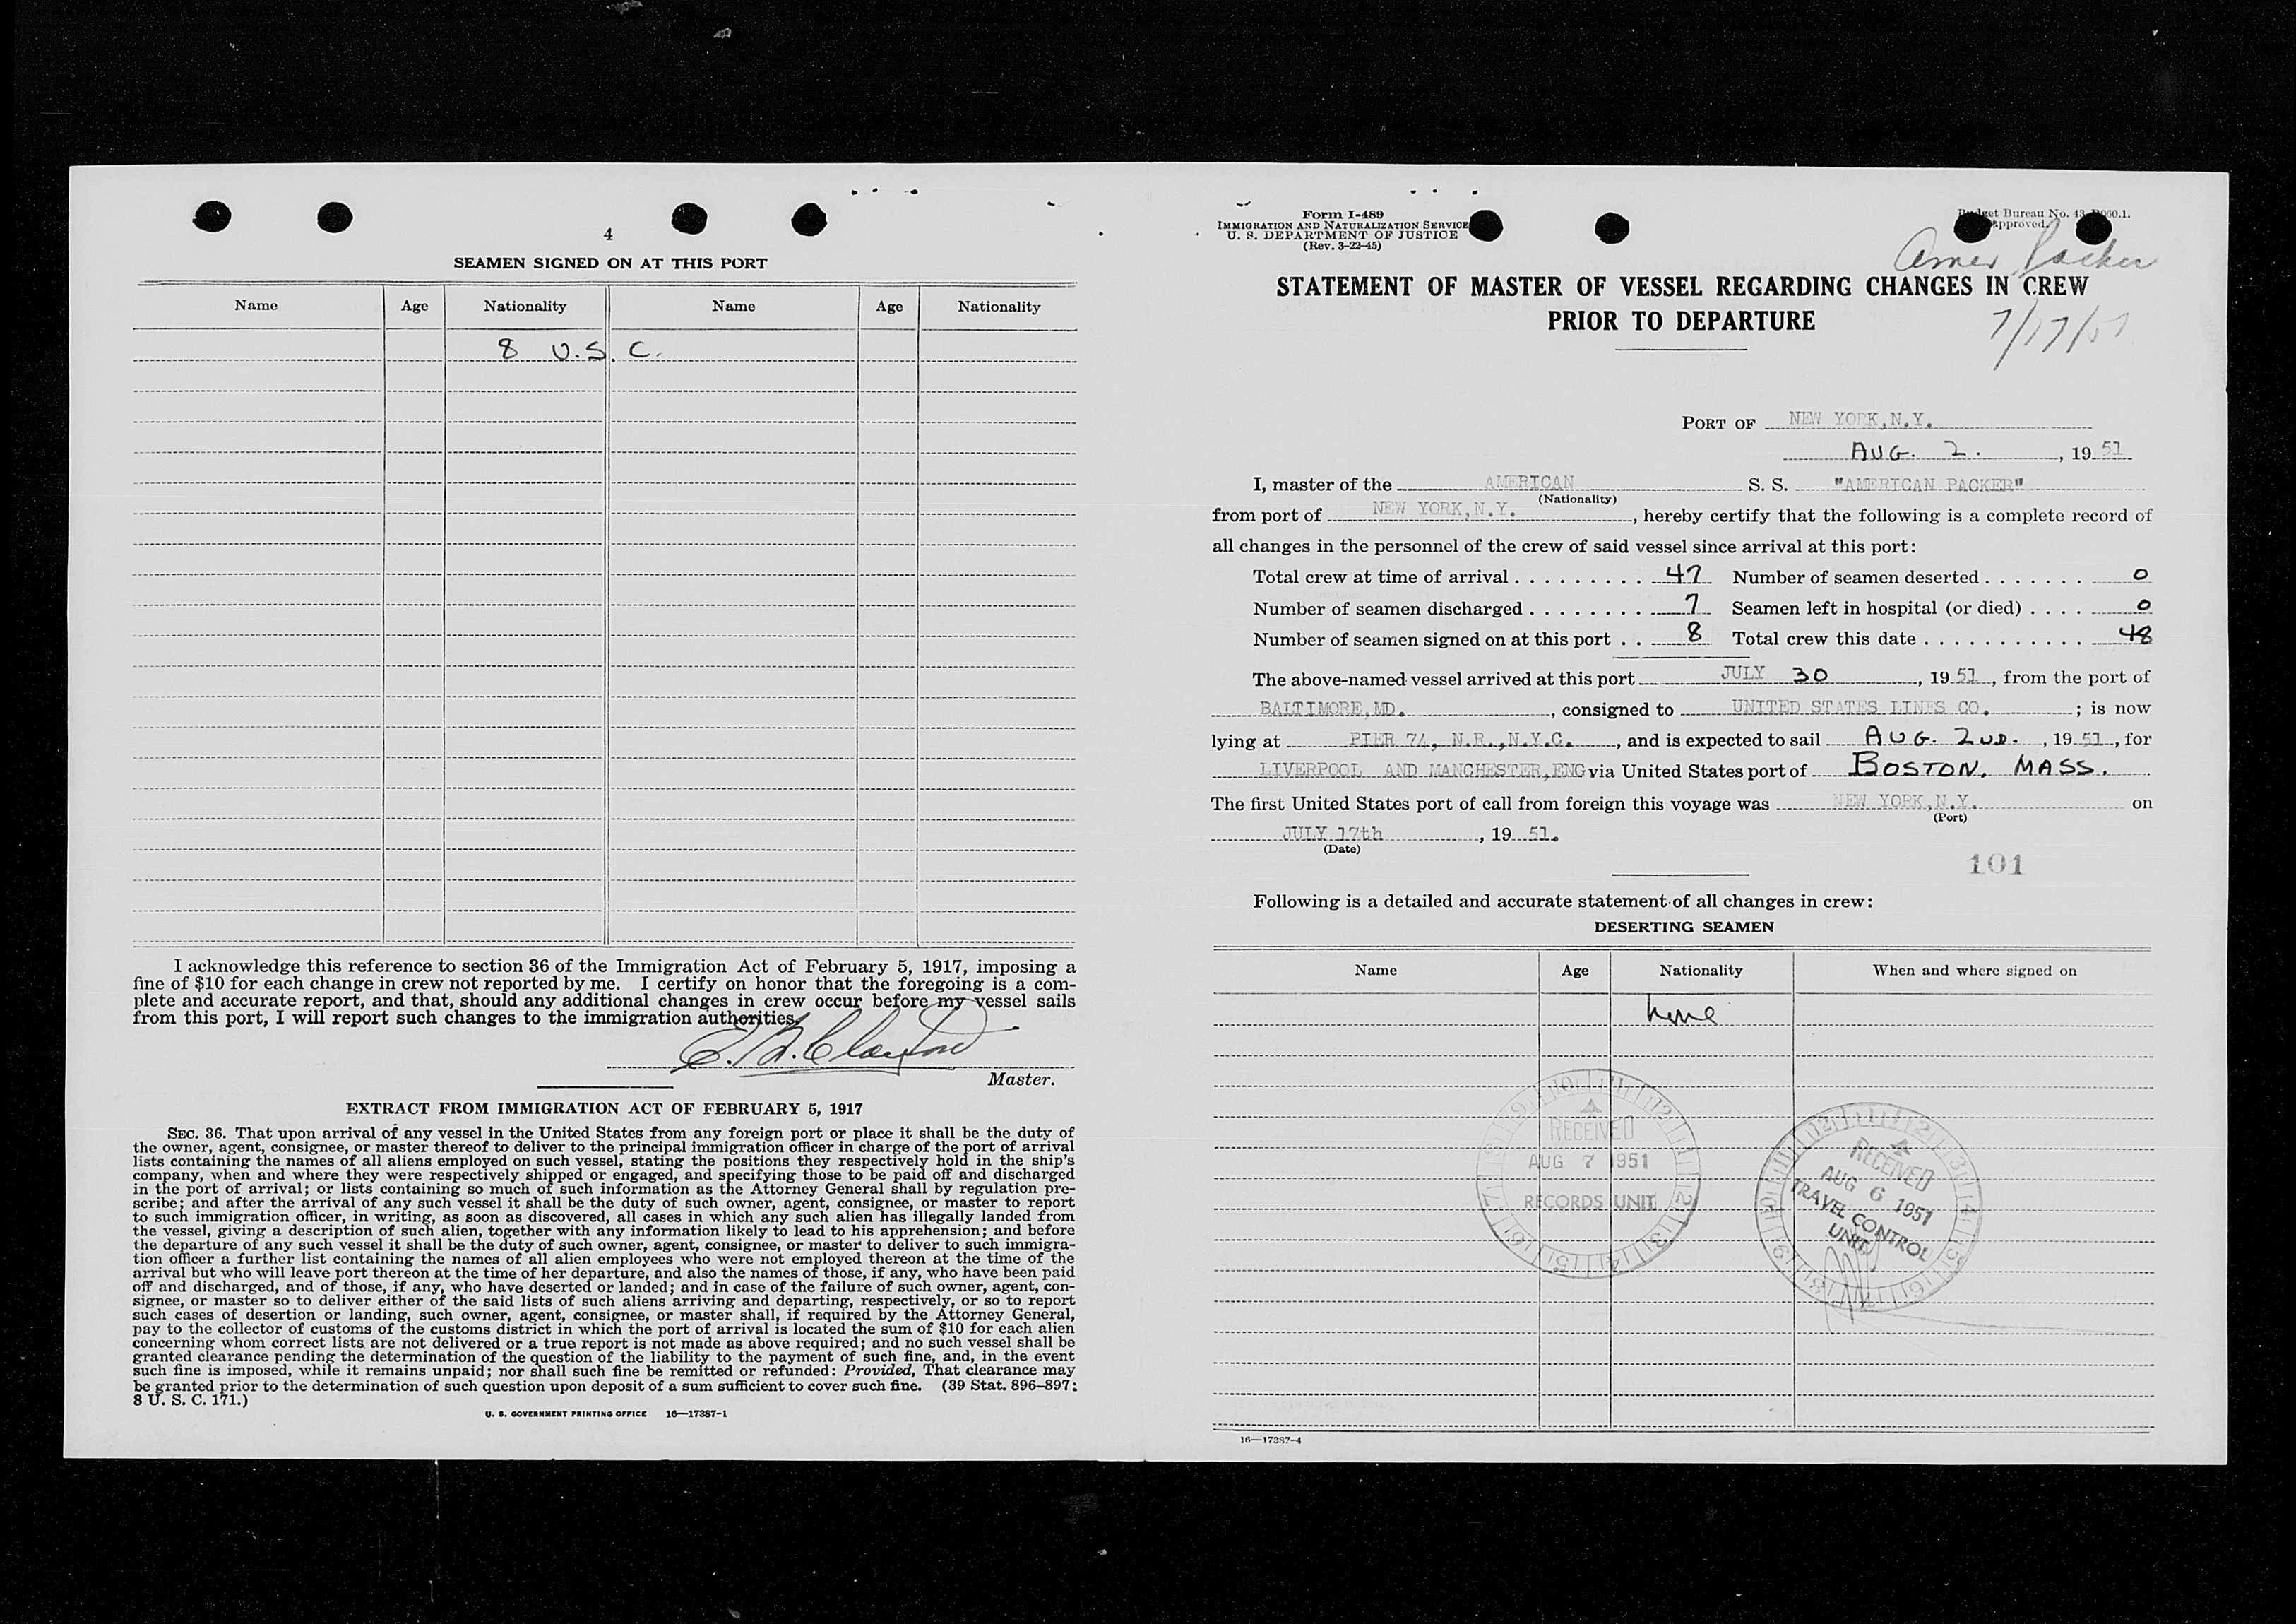 4
SEAMEN SIGNED ON AT THIS PORT
Name Age Nationality Name Age Nationality
8 U.S.C.
I acknowledge this reference to section 36 of the Immigration Act of February 5, 1917, imposing a
fine of $10 for each change in crew not reported by me. I certify on honor that the foregoing is a com-
plete and accurate report, and that, should any additional changes in crew occur before my vessel sails
from this port, I will report such changes to the immigration authorities.
Master.
EXTRACT FROM IMMIGRATION ACT OF FEBRUARY 5, 1917
SEC. 36. That upon arrival of any vessel in the United States from any foreign port or place it shall be the duty of
the owner, agent, consignee, or master thereof to deliver to the principal immigration officer in charge of the port of arrival
lists containing the names of all aliens employed on such vessel, stating the positions they respectively hold in the ship's
company, when and where they were respectively shipped or engaged, and specifying those to be paid off and discharged
in the port of arrival; or lists containing so much of such information as the Attorney General shall by regulation pre-
scribe; and after the arrival of any such vessel it shall be the duty of such owner, agent, consignee, or master to report
to such immigration officer, in writing, as soon as discovered, all cases in which any such alien has illegally landed from
the vessel, giving a description of such alien, together with any information likely to lead to his apprehension; and before
the departure of any such vessel it shall be the duty of such owner, agent, consignee, or master to deliver to such immigra-
tion officer a further list containing the names of all alien employees who were not employed thereon at the time of the
arrival but who will leave port thereon at the time of her departure, and also the names of those, if any, who have been paid
off and discharged, and of those, if any, who have deserted or landed; and in case of the failure of such owner, agent, con-
signee, or master so to deliver either of the said lists of such aliens arriving and departing, respectively, or so to report
such cases of desertion or landing, such owner, agent, consignee, or master shall, if required by the Attorney General,
pay to the collector of customs of the customs district in which the port of arrival is located the sum of $10 for each alien
concerning whom correct lists are not delivered or a true report is not made as above required; and no such vessel shall be
granted clearance pending the determination of the question of the liability to the payment of such fine, and, in the event
such fine is imposed, while it remains unpaid; nor shall such fine be remitted or refunded: Provided, That clearance may
be granted prior to the determination of such question upon deposit of a sum sufficient to cover such fine. (39 Stat. 896–897;
8 U. S. C. 171.)
U. S. GOVERNMENT PRINTING OFFICE 16—17387-1
Form I-489
IMMIGRATION AND NATURALIZATION SERVICE
U. S. DEPARTMENT OF JUSTICE
(Rev. 3-22-45)
Bureau No.
Approved.
Amer Packer
STATEMENT OF MASTER OF VESSEL REGARDING CHANGES IN CREW
PRIOR TO DEPARTURE
7/17/51
PORT OF NEW YORK,N.Y.
AUG. 2. , 19 51
I, master of the AMERICAN S. S. "AMERICAN PACKER"
(Nationality)
from port of NEW YORK,N.Y. , hereby certify that the following is a complete record of
all changes in the personnel of the crew of said vessel since arrival at this port:
Total crew at time of arrival . . . . . . . . . 47 Number of seamen deserted . . . . . . . 0
Number of seamen discharged . . . . . . . . 7 Seamen left in hospital (or died) . . . . 0
Number of seamen signed on at this port . . 8 Total crew this date . . . . . . . . . . . 48
The above-named vessel arrived at this port JULY 30 , 19 51 , from the port of
BALTIMORE,MD. , consigned to UNITED STATES LINES CO. ; is now
lying at PIER 74, N.R.,N.Y.C. , and is expected to sail AUG. 2ND. , 19 51 , for
LIVERPOOL AND MANCHESTER,ENG via United States port of BOSTON, MASS.
The first United States port of call from foreign this voyage was NEW YORK,N.Y. on
(Port)
JULY 17th , 19 51.
(Date)
101
Following is a detailed and accurate statement of all changes in crew:
DESERTING SEAMEN
Name Age Nationality When and where signed on
None
RECEIVED
AUG 7 1951
RECORDS UNIT
RECEIVED
AUG 6 1951
TRAVEL CONTROL
UNIT
16—17387-4